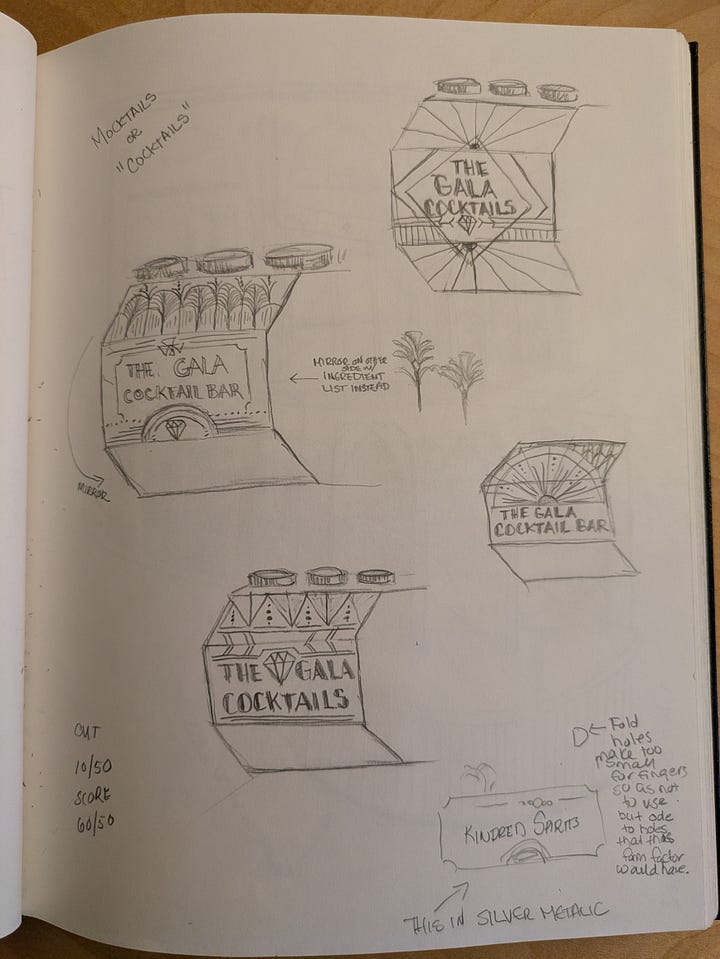 MOCKTAILS
OR
"COCKTAILS"
THE
GALA
COCKTAILS
THE GALA
COCKTAIL BAR
MIRROR ON OTHER
SIDE W/
INGREDIENT
LIST INSTEAD
MIRROR
THE GALA
COCKTAIL BAR
THE GALA
COCKTAILS
CUT
10/50
SCORE
60/50
Fold
holes
make too
small
for fingers
so as not
to use
but ode
to holes
that this
form factor
would have.
KINDRED SPIRITS
THIS IN SILVER METALIC